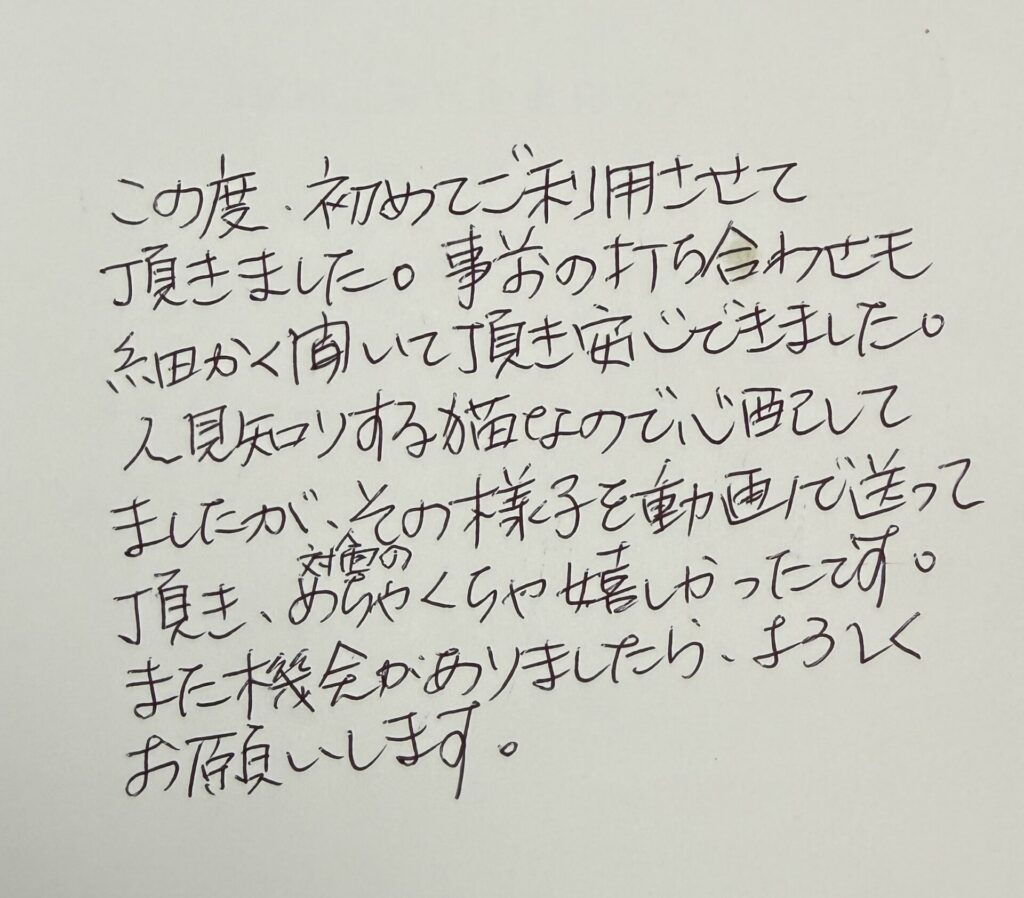 この度、初めてご利用させて
頂きました。事前の打ち合わせも
細かく聞いて頂き安心できました。
人見知りする猫なので心配して
ましたが、その様子を動画で送って
頂き、めちゃくちゃ嬉しかったです。
また機会がありましたら、よろしく
お願いします。